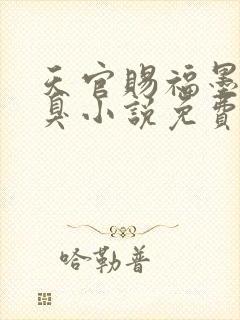 天官赐福墨
臭小说免费
哈勒普